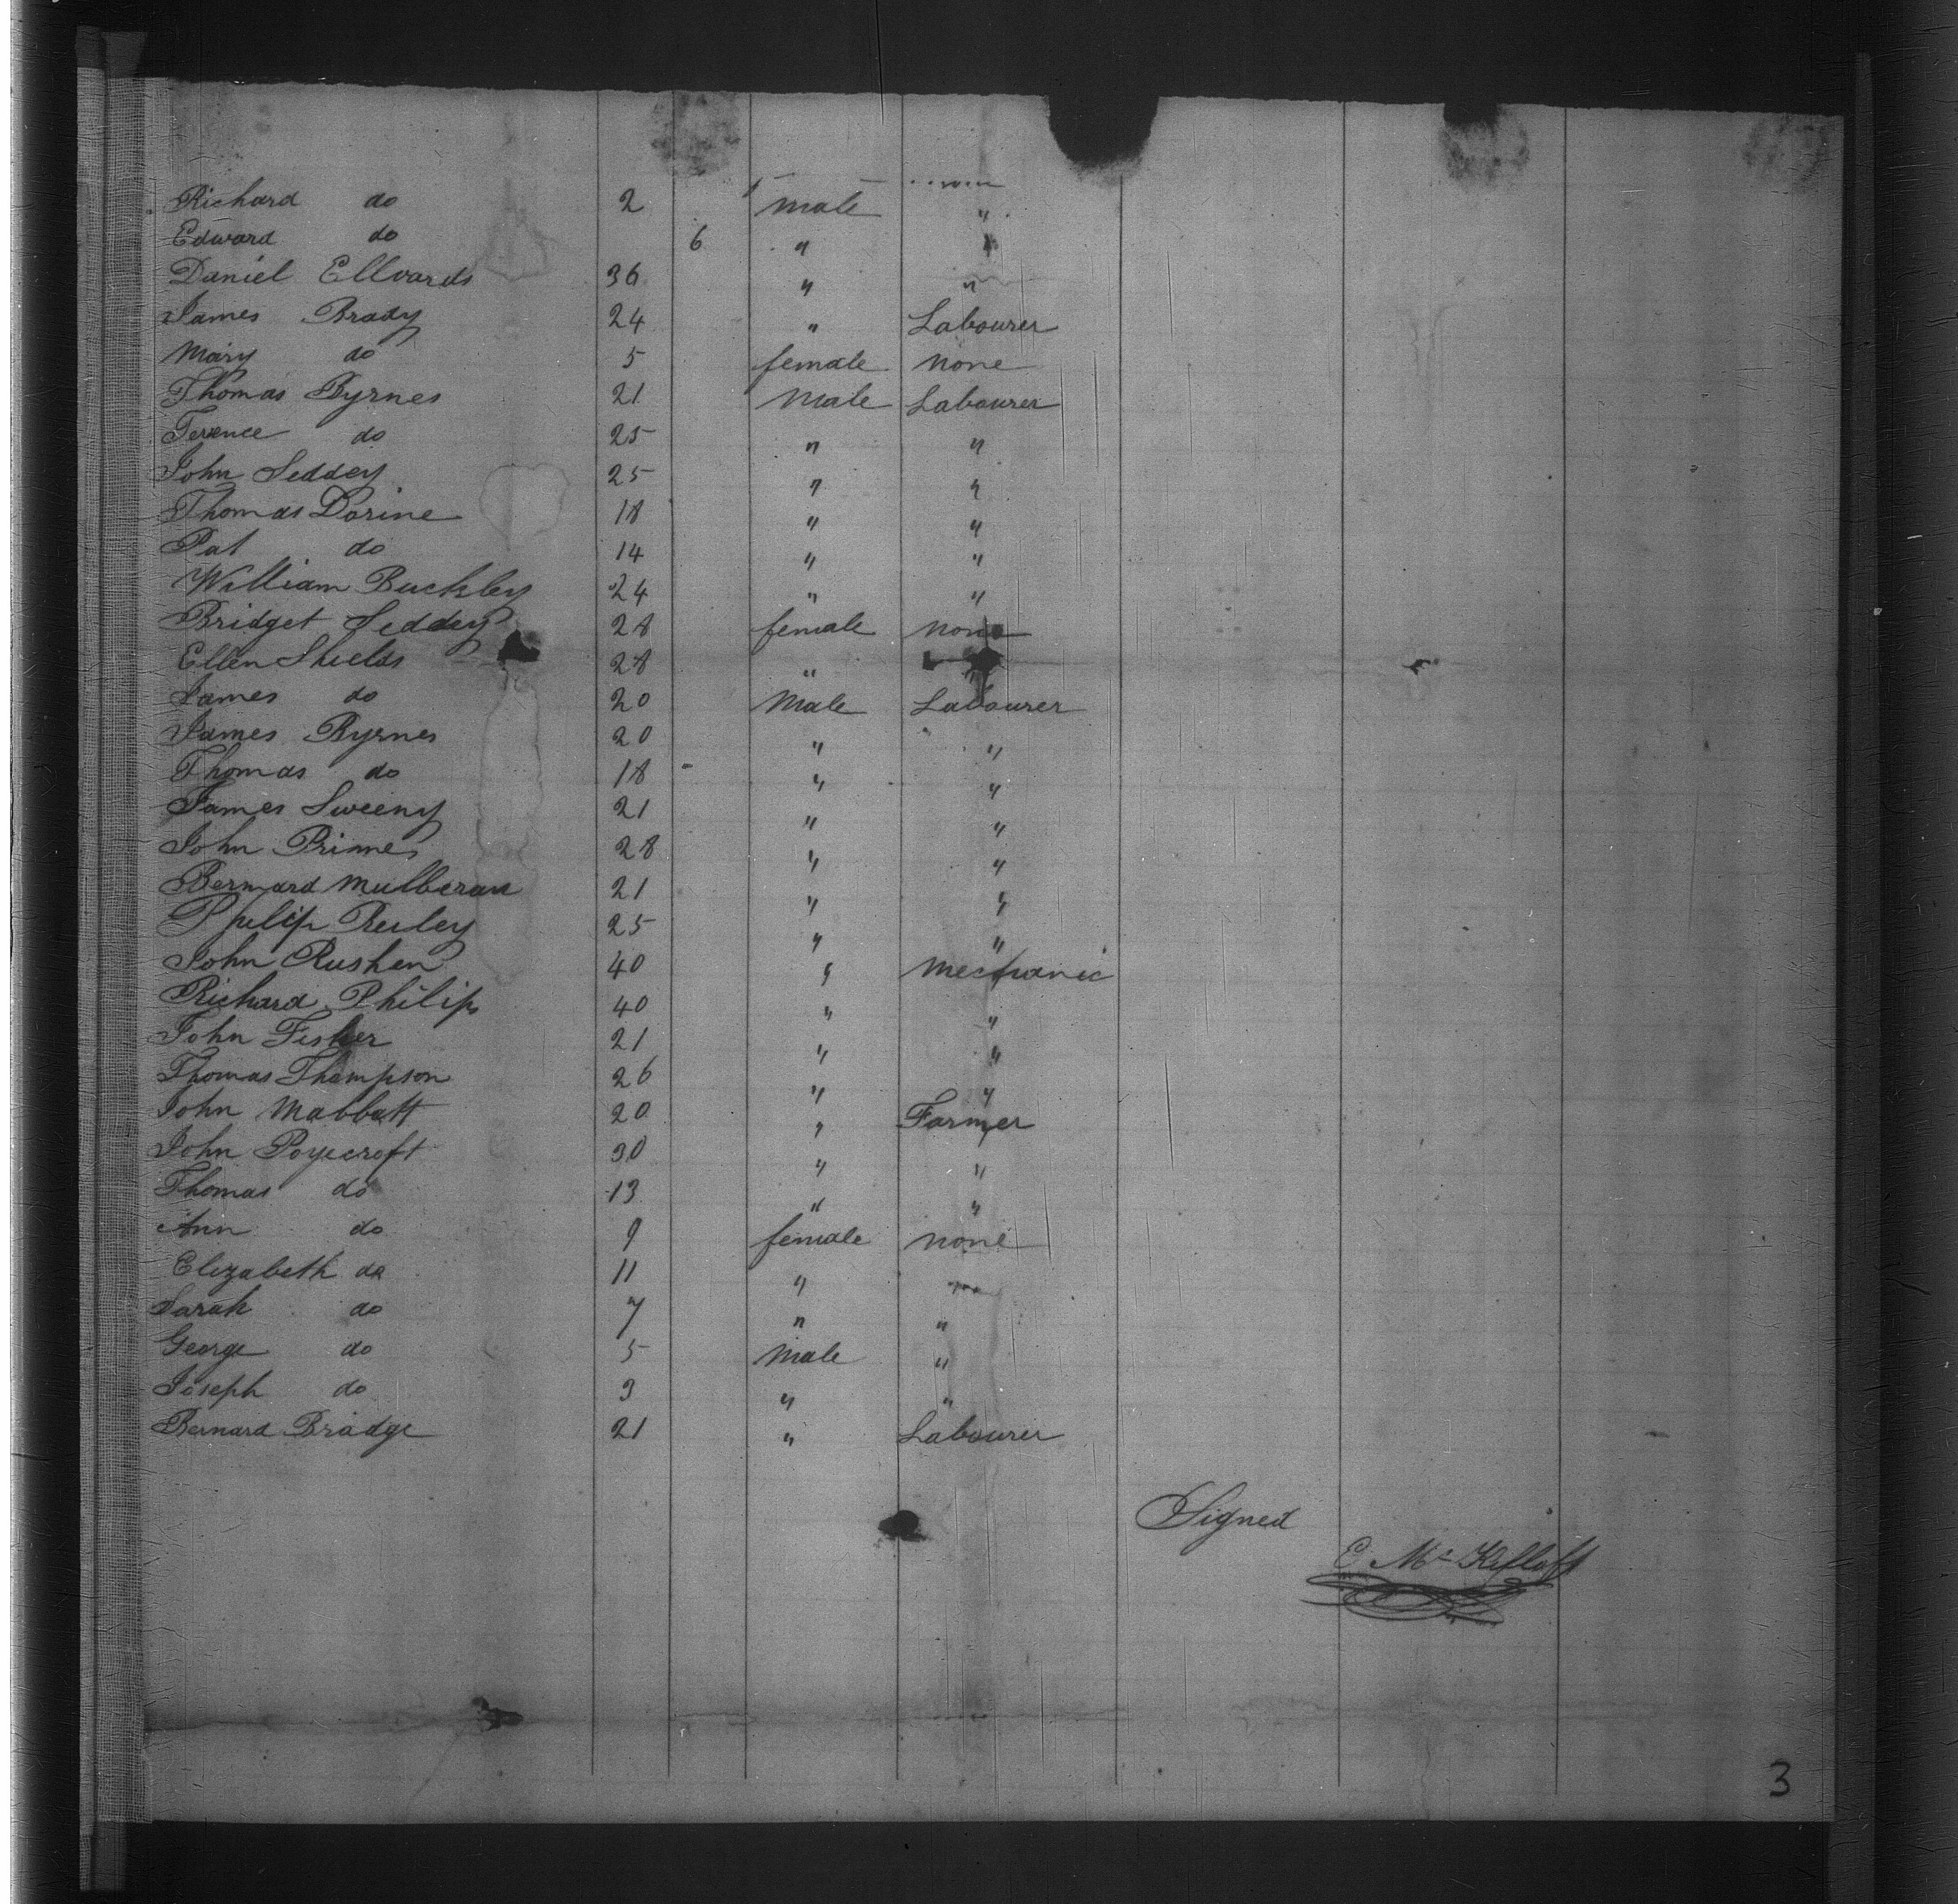 Richard do 2 male "
Edward do 6 " "
Daniel Ellvards 36 " "
James Brady 24 " Labourer
Mary do 5 female none
Thomas Byrnes 21 Male Labourer
Terence do 25 " "
John Seddey 25 " "
Thomas Dorine 18 " "
Pat do 14 " "
William Buckley 24 " "
Bridget Seddey 28 female none
Ellen Shields 28 " "
James do 20 Male Labourer
James Byrnes 20 " "
Thomas do 18 " "
James Sweeny 21 " "
John Primes 28 " "
Bernard Mulberan 21 " "
Philip Reiley 25 " "
John Rushen 40 " Mechanic
Richard Philips 40 " "
John Fisher 21 " "
Thomas Thompson 26 " "
John Mabbatt 20 " Farmer
John Poyecroft 30 " "
Thomas do 13 " "
Ann do 9 female none
Elizabeth do 11 " "
Sarah do 7 " "
George do 5 Male "
Joseph do 3 " "
Bernard Bradge 21 " Labourer
Signed
E Mc
3